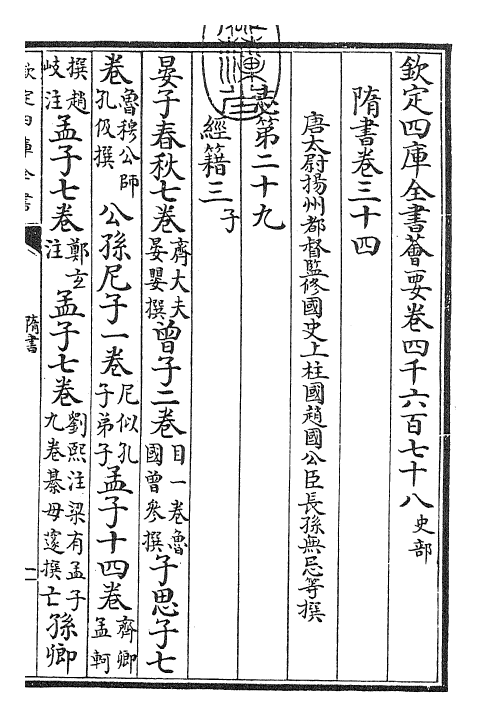 欽定四庫全書薈要卷四千六百七十八 史部
隋書卷三十四
唐太尉揚州都督監修國史上柱國趙國公臣長孫無忌等撰
志第二十九
經籍三 子
晏子春秋七卷 齊大夫晏嬰撰 曾子二卷 目一卷魯國曾參撰 子思子七
卷 魯穆公師孔伋撰 公孫尼子一卷 尼似孔子弟子 孟子十四卷 齊卿孟軻
撰趙岐注 孟子七卷 鄭玄注 孟子七卷 劉熙注梁有孟子九卷綦毋邃撰亡 孫卿
欽定四庫全書
隋書